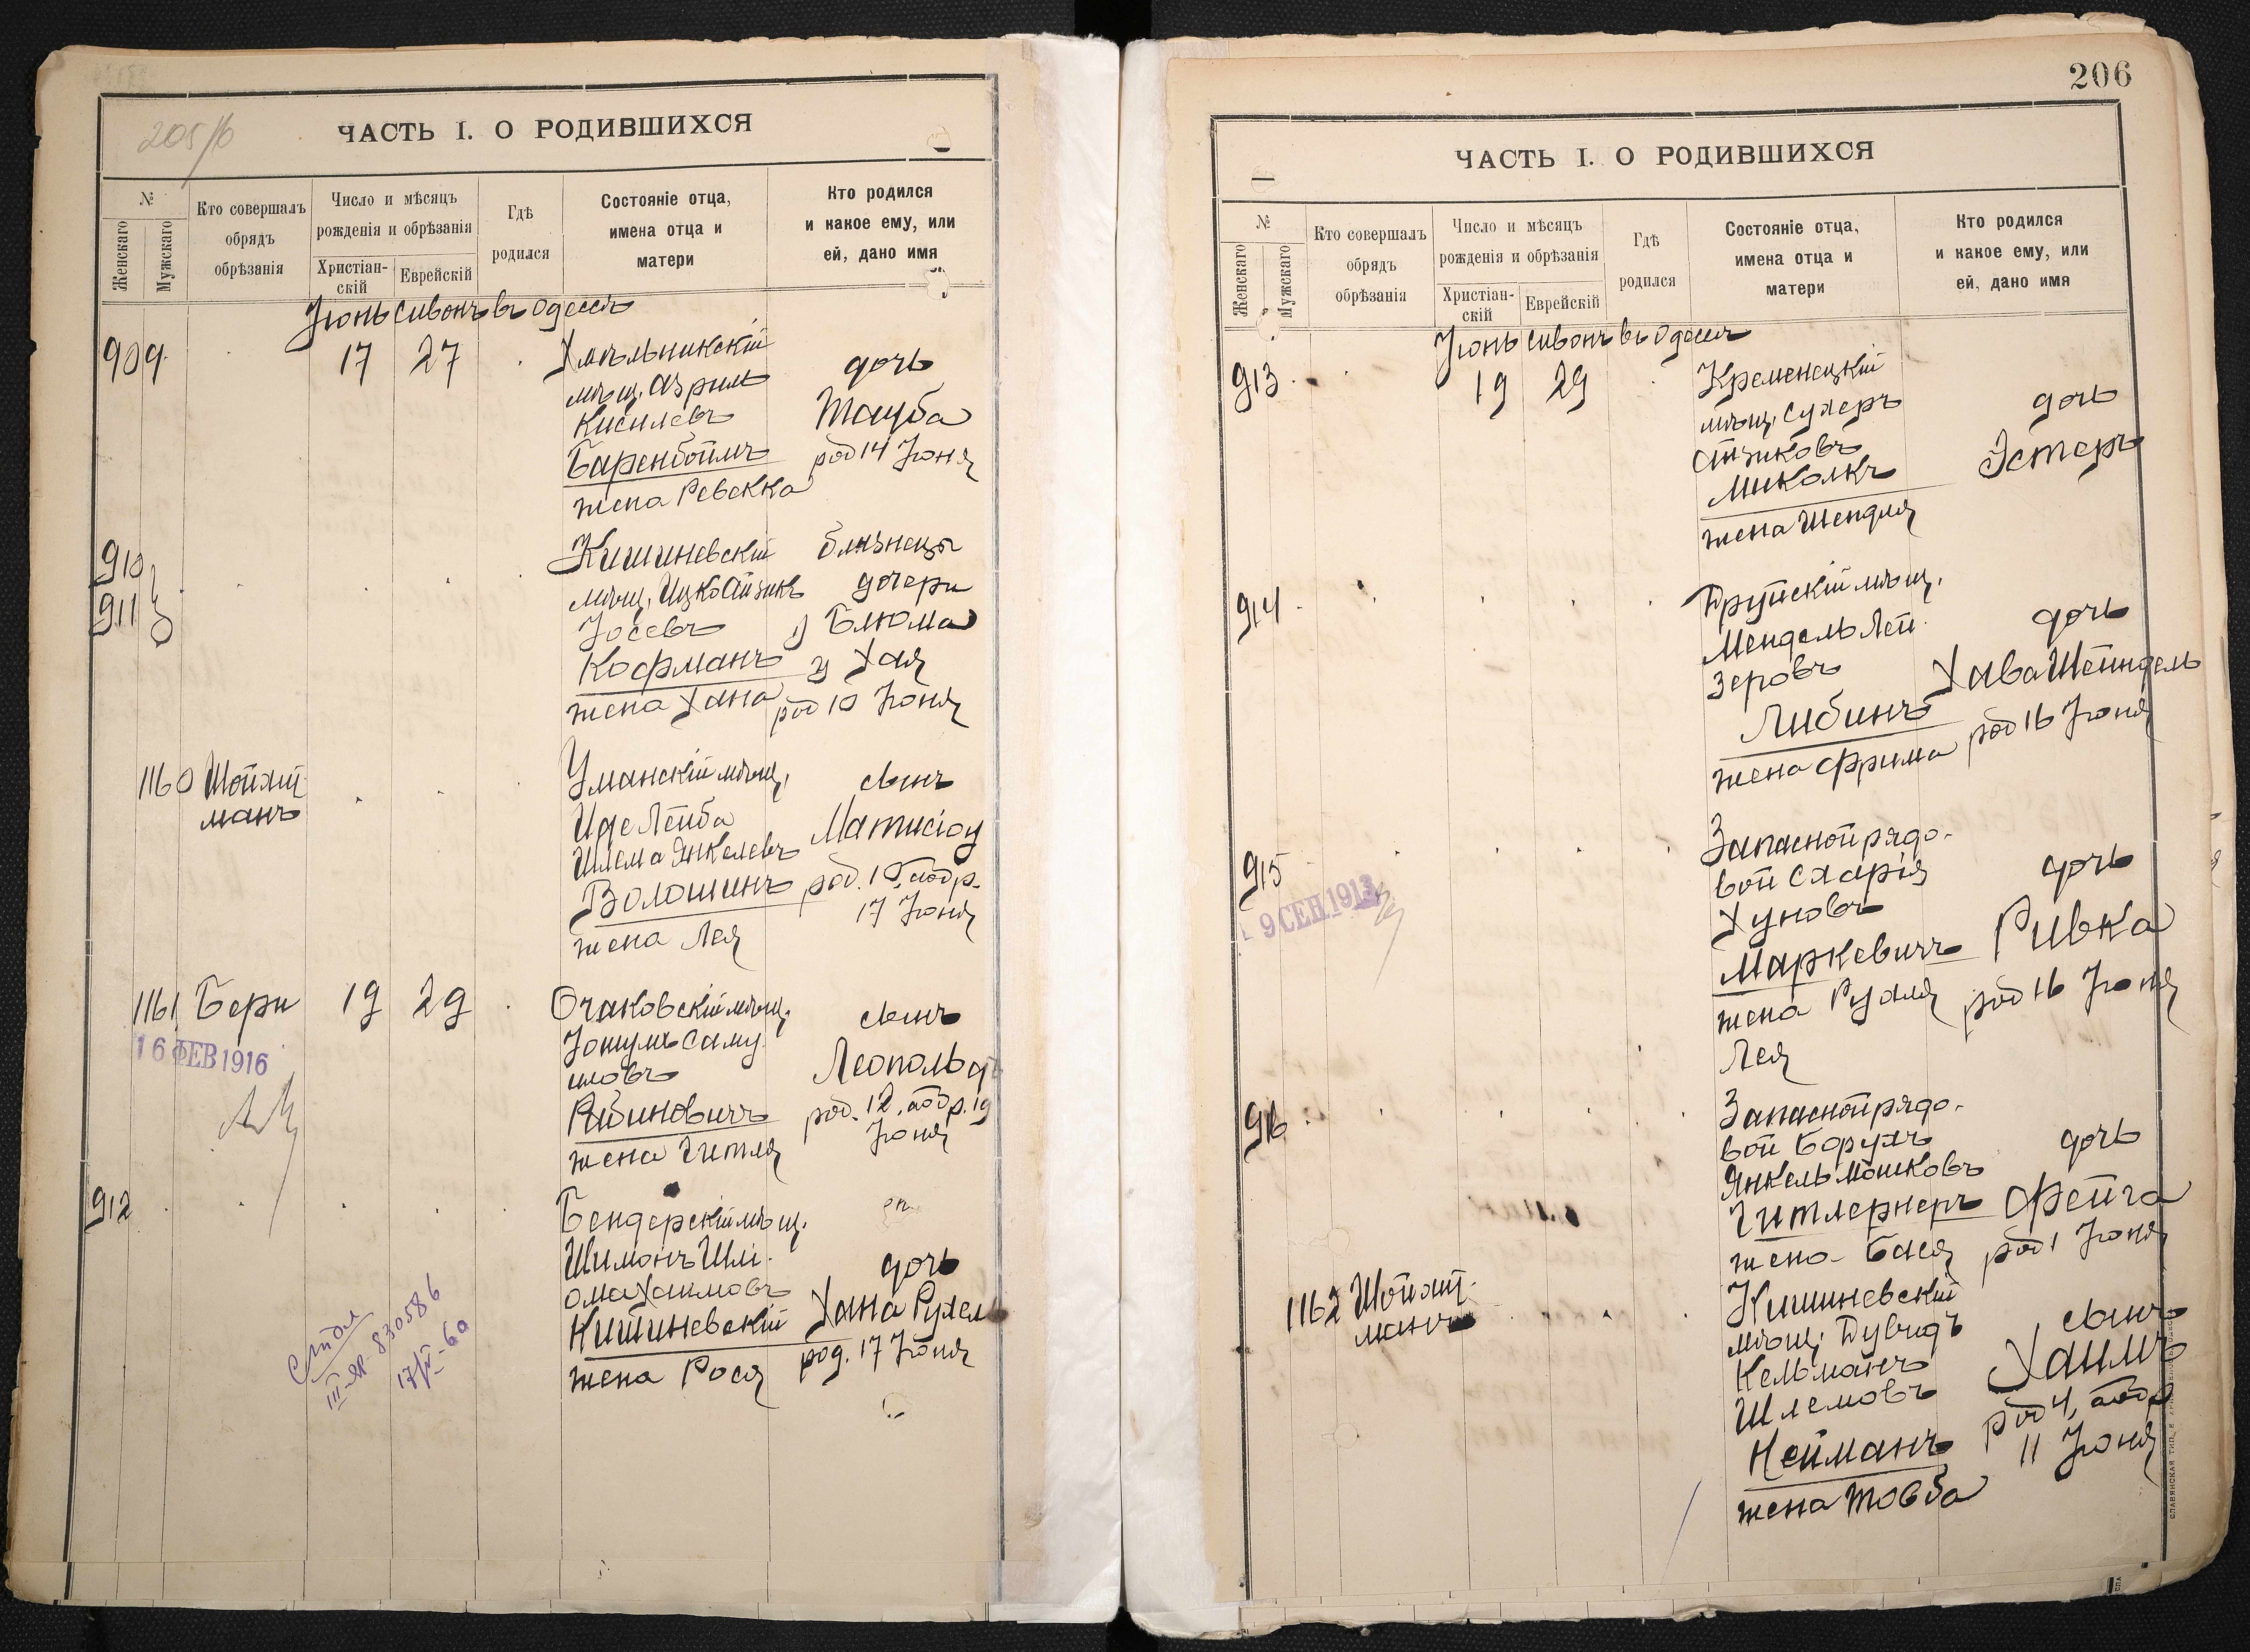 205/б
ЧАСТЬ I. О РОДИВШИХСЯ
№
Женскаго
Мужскаго
Кто совершалъ обрядъ обрѣзанія
Число и мѣсяцъ рожденія и обрѣзанія
Христіан-скій
Еврейскій
Гдѣ родился
Состояніе отца, имена отца и матери
Кто родился и какое ему, или ей, дано имя
Іюнь Сивонъ въ Одессѣ
909 17 27
Хмѣльникскій
мѣщ. Азриль
Киселевъ
Баренбоймъ
жена Ревекка
дочь
Тауба
род 14 Іюня
910
911
Кишиневскій
мѣщ. Ицко Айзикъ
Іосевъ
Кофманъ
жена Хана
близнецы
дочери
1) Блюма
2) Хая
род 10 Іюня
1160 Шойхит
манъ
Уманскій мѣщ.
Иде Лейба
Шлема Янкелевъ
Волошинъ
жена Лея
сынъ
Матисіоу
род. 10, а обр.
17 Іюня
1161 Бери 19 29
16 ФЕВ 1916
Очаковскій мѣщ.
Іошуа Саму
иловъ
Рабиновичъ
жена Гитля
сынъ
Леопольдъ
род. 12, а обр. 19
Іюня
912
Бендерскій мѣщ.
Шимонъ Шлі
ома Хаимовъ
Кишиневскій
жена Рося
дочь
Хана Рухель
род. 17 Іюня
III-ЯР-830586
206
ЧАСТЬ I. О РОДИВШИХСЯ
№
Женскаго
Мужскаго
Кто совершалъ обрядъ обрѣзанія
Число и мѣсяцъ рожденія и обрѣзанія
Христіан-скій
Еврейскій
Гдѣ родился
Состояніе отца, имена отца и матери
Кто родился и какое ему, или ей, дано имя
Іюнь Сивонъ въ Одессѣ
913 19 29
Кременецкій
мѣщ. Сухеръ
Айзиковъ
Миколкъ
жена Шендля
дочь
Эстеръ
914
Друйскій мѣщ.
Мендель Лей
зеровъ
Либинъ
жена Фрима
дочь
Хава Шейндель
род 16 Іюня
915
9 СЕН 1913
Запасной рядо-
вой Схарія
Хуновъ
Маркевичъ
жена Рухля
Лея
дочь
Ривка
род 16 Іюня
916
Запасной рядо-
вой Борухъ
Янкель Мошковъ
Гитлернеръ
жена Бася
дочь
Фейга
род 1 Іюня
1162 Шойхит-
манъ
Кишиневскій
мѣщ. Дувидъ
Кельманъ
Шлемовъ
Нейманъ
жена Товба
сынъ
Хаимъ
род 4, а обр
11 Іюня